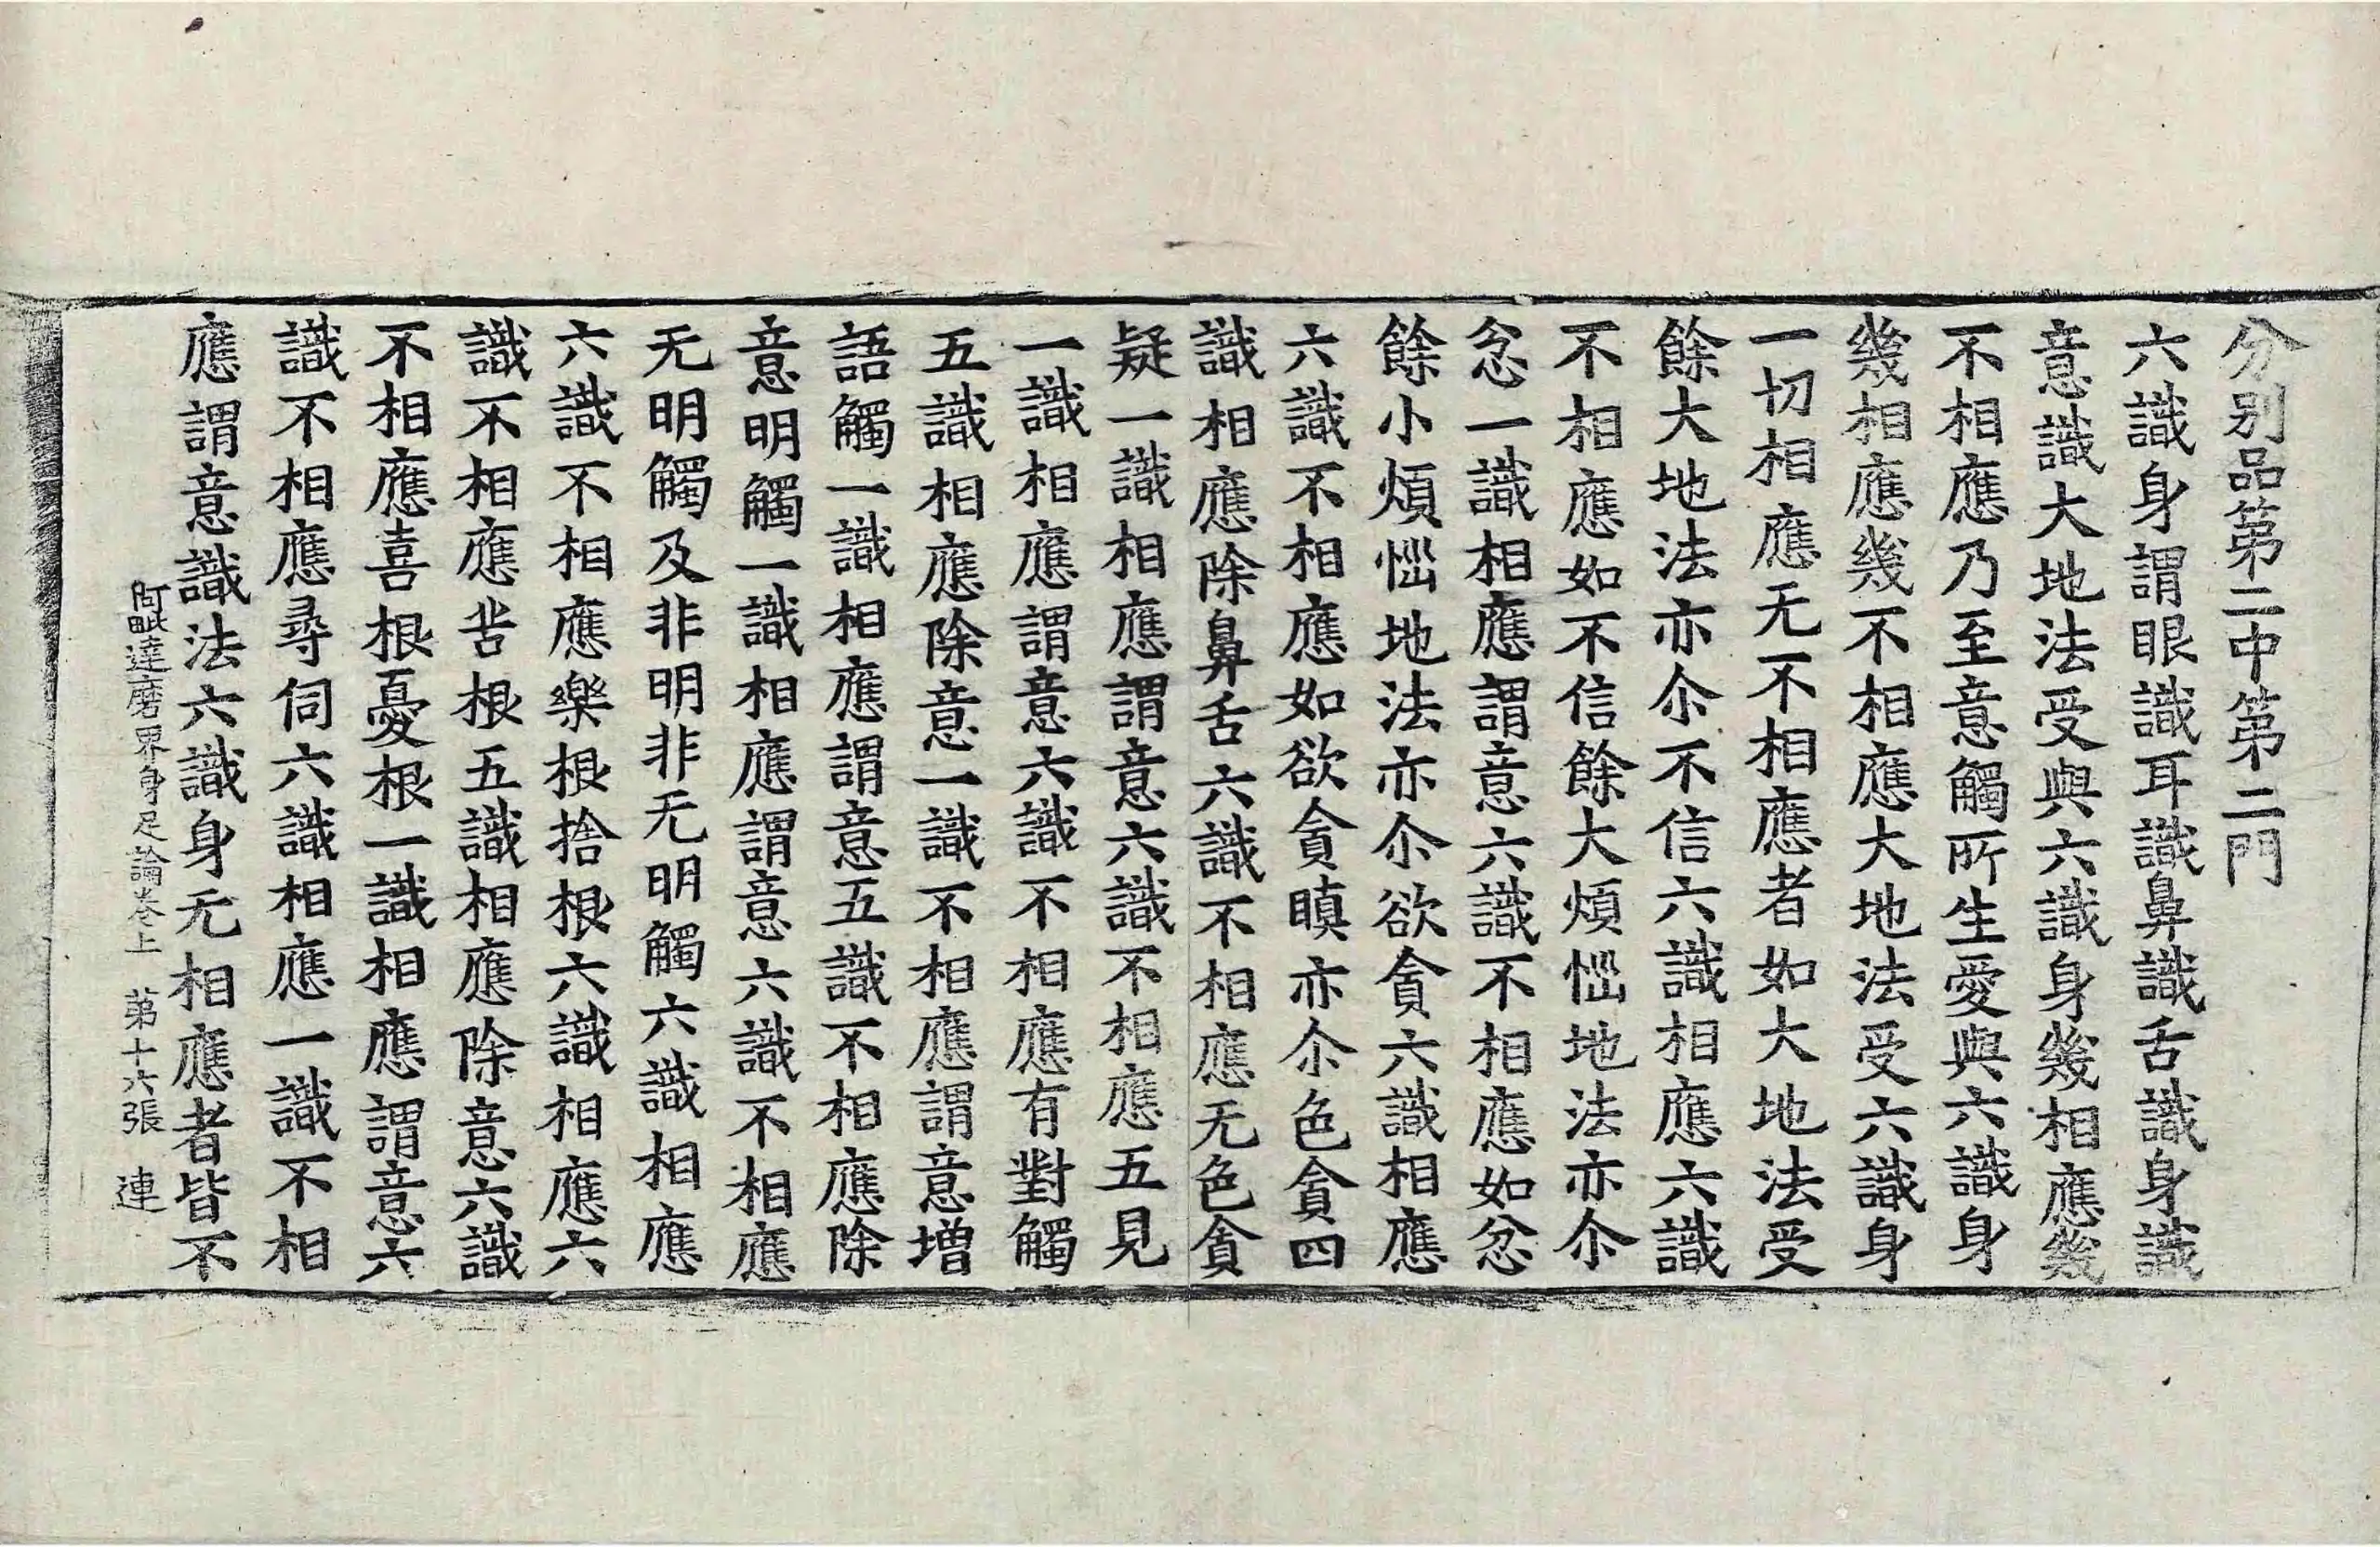 分别品第二中第二門
六識身謂眼識耳識鼻識舌識身識
意識大地法受與六識身幾相應幾
不相應乃至意觸所生愛與六識身
幾相應幾不相應大地法受六識身
一切相應无不相應者如大地法受
餘大地法亦尒不信六識相應六識
不相應如不信餘大煩惱地法亦尒
忿一識相應謂意六識不相應如忿
餘小煩惱地法亦尒欲貪六識相應
六識不相應如欲貪瞋亦尒色貪四
識相應除鼻舌六識不相應无色貪
疑一識相應謂意六識不相應五見
一識相應謂意六識不相應有對觸
五識相應除意一識不相應謂意增
語觸一識相應謂意五識不相應除
意明觸一識相應謂意六識不相應
无明觸及非明非无明觸六識相應
六識不相應樂根捨根六識相應六
識不相應苦根五識相應除意六識
不相應喜根憂根一識相應謂意六
識不相應尋伺六識相應一識不相
應謂意識法六識身无相應者皆不
阿毗達磨界身足論卷上 苐十六張 連